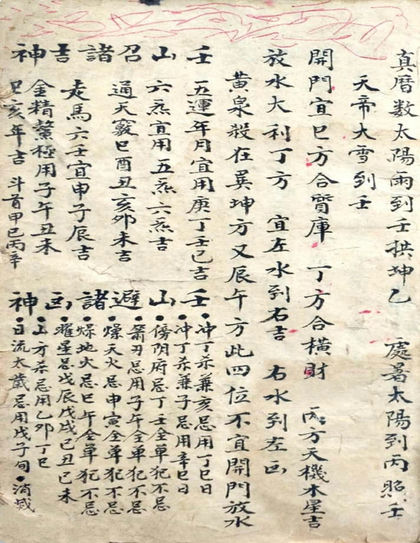 真曆数太陽雨到壬拱坤乙 處暑太陽到丙照壬
天帝大雪到壬
開門宜巳方合寳庫 丁方合橫財 丙方天機木星吉
放水大利丁方 宜左水到右吉 右水到左凶
黃泉殺在巽坤方又辰午方此四位不宜開門放水
壬山召諸吉神
五運年月宜用庚丁壬巳吉
六炁宜用五炁六炁吉
通天竅巳酉丑亥卯未吉
走馬六壬宜申子辰吉
金精鰲極用子午丑未
巳亥年吉 斗首甲巳丙辛
壬山避諸凶神
冲丁杀兼亥忌用丁巳日
冲丁杀兼子忌用辛巳日
傍陰府忌丁壬全单犯不忌
箭刃忌用子午全单犯不忌
燥天火忌申寅全单犯不忌
燥地火忌巳午全单犯不忌
曜星忌戊辰戊戌巳丑巳未
山方杀忌用乙卯丁巳
日流太歲忌用戊子旬 消滅